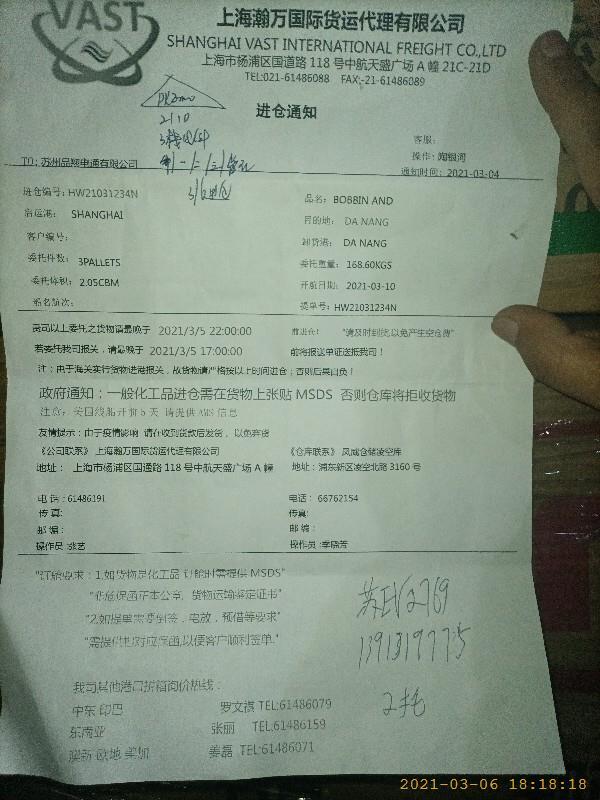 VAST
上海瀚万国际货运代理有限公司
SHANGHAI VAST INTERNATIONAL FREIGHT CO.,LTD
上海市杨浦区国道路 118 号中航天盛广场 A 幢 21C-21D
TEL:021-61486088 FAX:-21-61486089
进仓通知
2110
客服:
操作: 陶银河
TO: 苏州品翔电通有限公司
通知时间: 2021-03-04
进仓编号: HW21031234N
品名: BOBBIN AND
启运港: SHANGHAI
目的地: DA NANG
客户编号:
卸货港: DA NANG
委托件数: 3PALLETS
委托重量: 168.60KGS
委托体积: 2.05CBM
开航日期: 2021-03-10
船名航次:
提单号: HW21031234N
贵司以上委托之货物请最晚于 2021/3/5 22:00:00 前进仓! "请及时到货以免产生空仓费"
若委托我司报关,请最晚于 2021/3/5 17:00:00 前将报送单证送抵我司!
注:由于海关实行货物进港报关,故货物请严格按以上时间进仓;否则后果自负!
政府通知:一般化工品进仓需在货物上张贴 MSDS 否则仓库将拒收货物
注意: 美国线船开前 5 天 请提供 AMS 信息
友情提示:由于疫情影响 请在收到货款后发货, 以免弃货
《公司联系》上海瀚万国际货运代理有限公司
《仓库联系》凤威仓储凌空库
地址: 上海市杨浦区国通路 118 号中航天盛广场 A 幢
地址:浦东新区凌空北路 3160 号
电话:61486191
电话: 66762154
传真:
传真:
邮编:
邮编:
操作员:张艺
操作员:李晓芳
"订舱要求:1.如货物是化工品 订舱时需提供 MSDS"
"非危保函正本公章, 货物运输鉴定证书"
"2.如提单需要倒签,电放,预借等要求"
"需提供相对应保函,以便客户顺利签单."
我司其他港口拼箱询价热线:
中东 印巴 罗文祺 TEL:61486079
东南亚 张丽 TEL:61486159
澳新 欧地 美加 姜磊 TEL:61486071
2托
2021-03-06 18:18:18